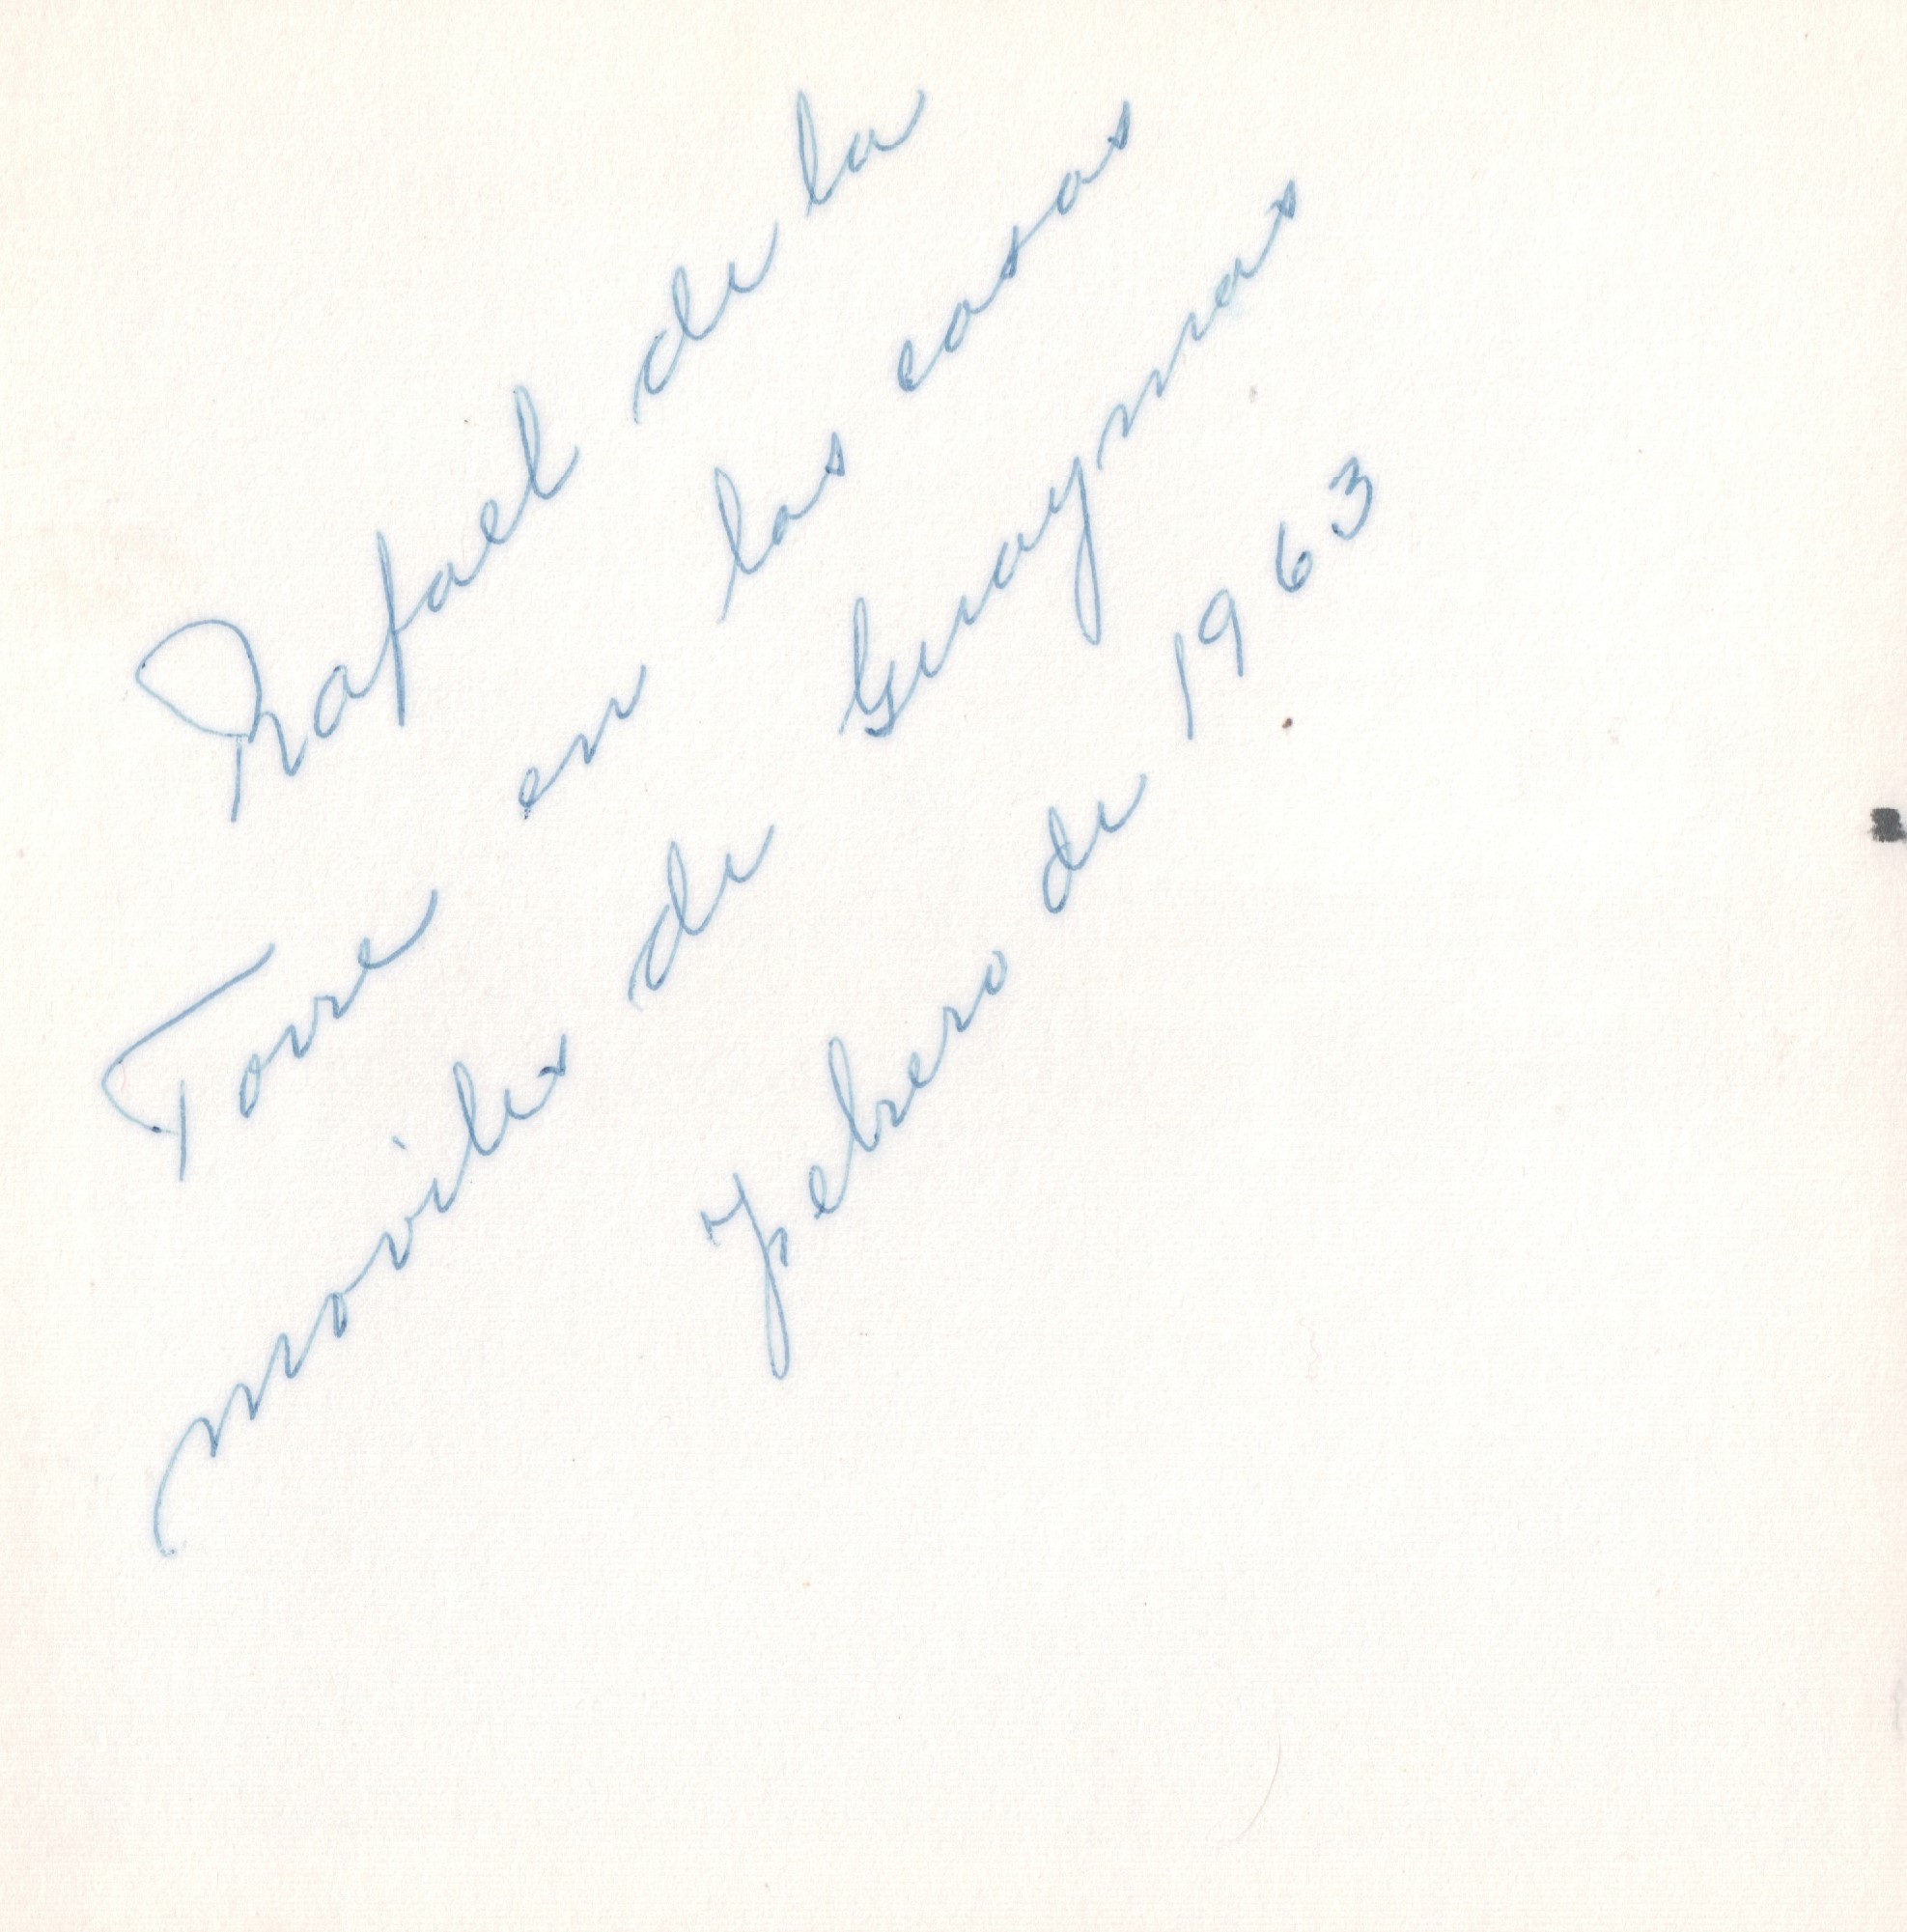 Rafael de la
Torre en las casas
moviles de Guaymas
febrero de 1963